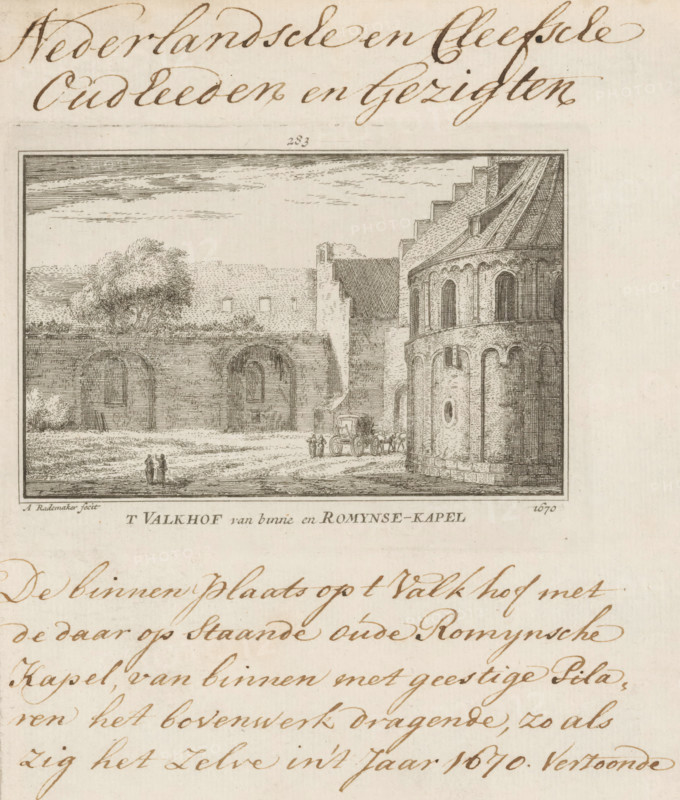 Nederlandsche en Cleefsche
Oudheeden en Gezigten
283
A Rademaker fecit
1670
T VALKHOF van binne en ROMYNSE-KAPEL
De binnen plaats op t Valkhof met
de daar op Staande oúde Romynsche
Kapel, van binnen met geestige Pila,
ren het bovenwerk dragende, zo als
zig het Zelve in't Jaar 1670. Vertoonde